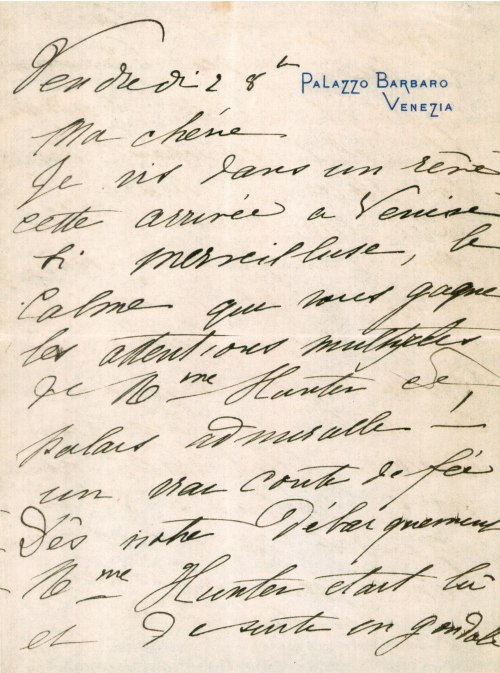 PALAZZO BARBARO
VENEZIA
Vendredi 28 7bre
Ma chérie
Je vis dans un rêve
cette arrivée a Venise
si merveilleuse, le
calme que vous gagne
les attentions multiples
de Mme Hunter ce
palais admirable —
un vrai conte de fée
Dès notre débarquement
Mme Hunter était là
et de suite en gondole